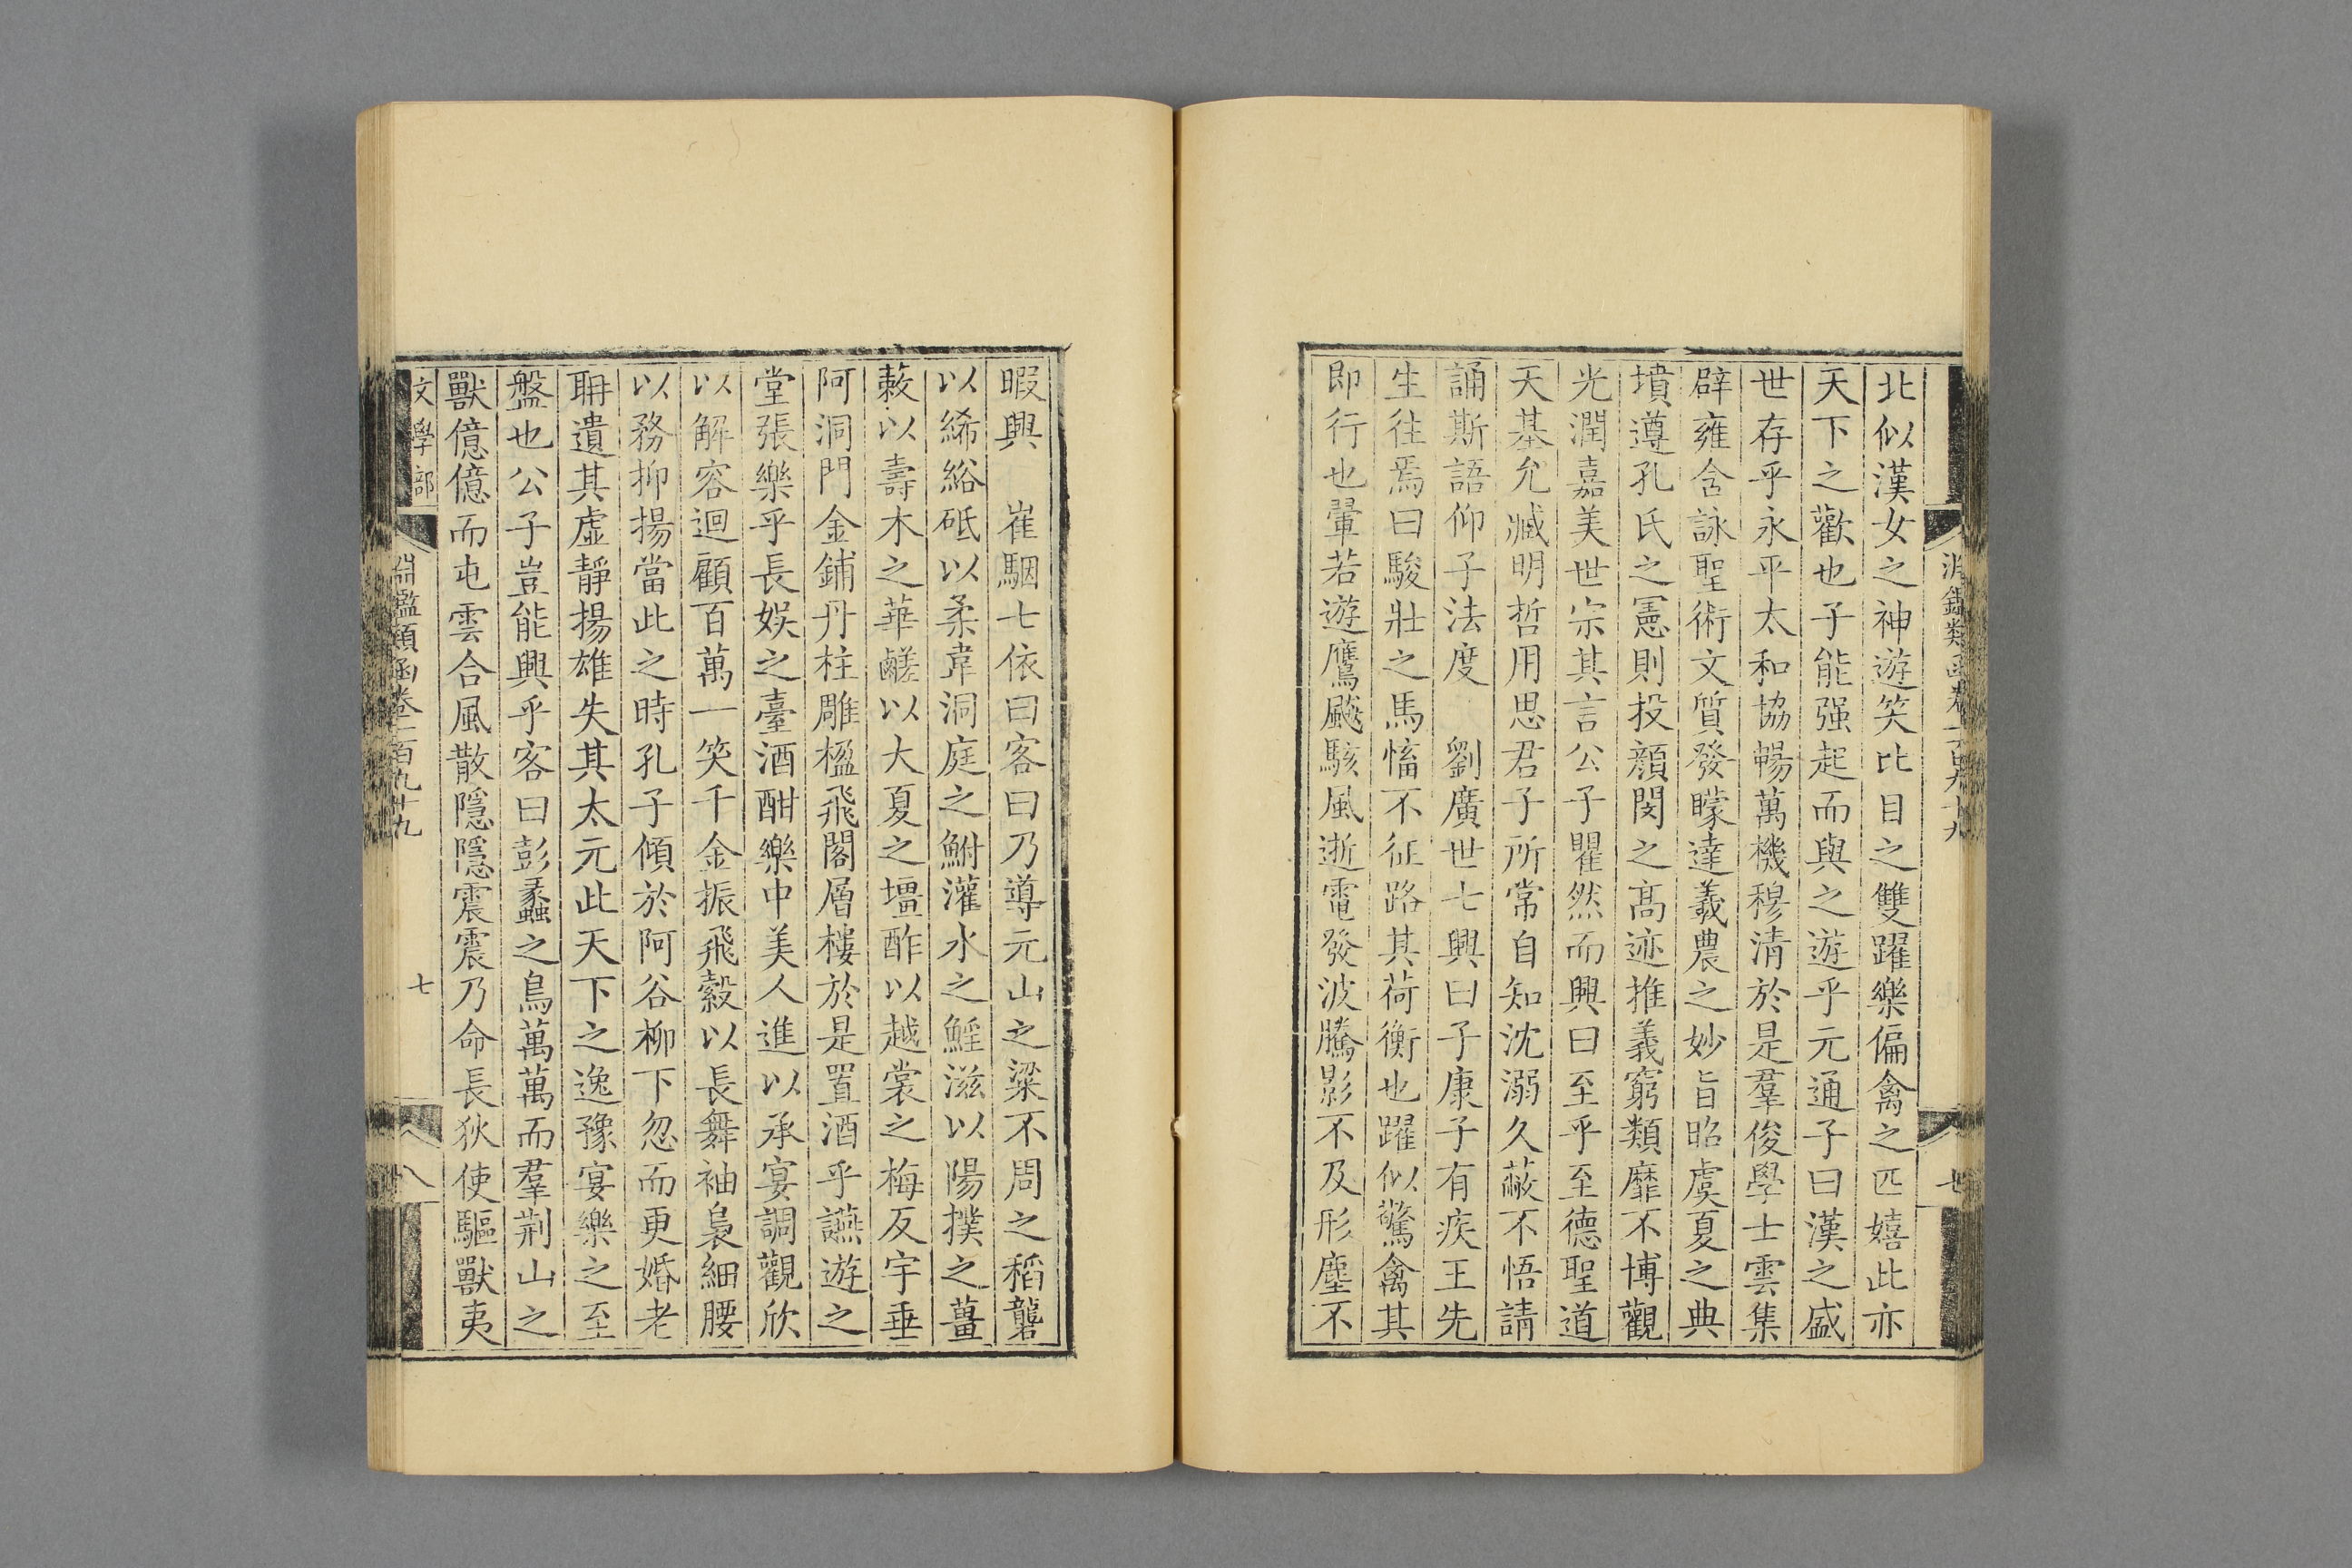 北似漢女之神遊笑比目之雙躍樂偏禽之匹嬉此亦
天下之歡也子能强起而與之遊乎元通子曰漢之盛
世存乎永平太和協暢萬機穆清於是羣俊學士雲集
辟雍含詠聖術文質發矇達羲農之妙旨昭虞夏之典
墳遵孔氏之憲則投顏閔之高迹推義窮類靡不博觀
光潤嘉美世宗其言公子瞿然而興曰至乎至德聖道
天基允臧明哲用思君子所常自知沈溺久蔽不悟請
誦斯語仰子法度　劉廣世七興曰子康子有疾王先
生往焉曰駿壯之馬愭不征路其荷衡也躍似驚禽其
即行也翬若遊鷹飈駭風逝電發波騰影不及形塵不
暇興　崔駰七依曰客曰乃導元山之粱不周之稻礱
以絺綌砥以柔韋洞庭之鮒灌水之鰩滋以陽撲之薑
蔌以壽木之華鹺以大夏之壃酢以越裳之梅反宇垂
阿洞門金鋪丹柱雕楹飛閣層樓於是置酒乎讌遊之
堂張樂乎長娛之臺酒酣樂中美人進以承宴調觀欣
以解容迴顧百萬一笑千金振飛縠以長舞袖裊細腰
以務抑揚當此之時孔子傾於阿谷柳下忽而更婚老
聃遺其虛靜揚雄失其太元此天下之逸豫宴樂之至
盤也公子豈能興乎客曰彭蠡之鳥萬萬而羣荆山之
獸億億而屯雲合風散隱隱震震乃命長狄使驅獸夷
文學部
淵鑑類函卷一百九十九
七